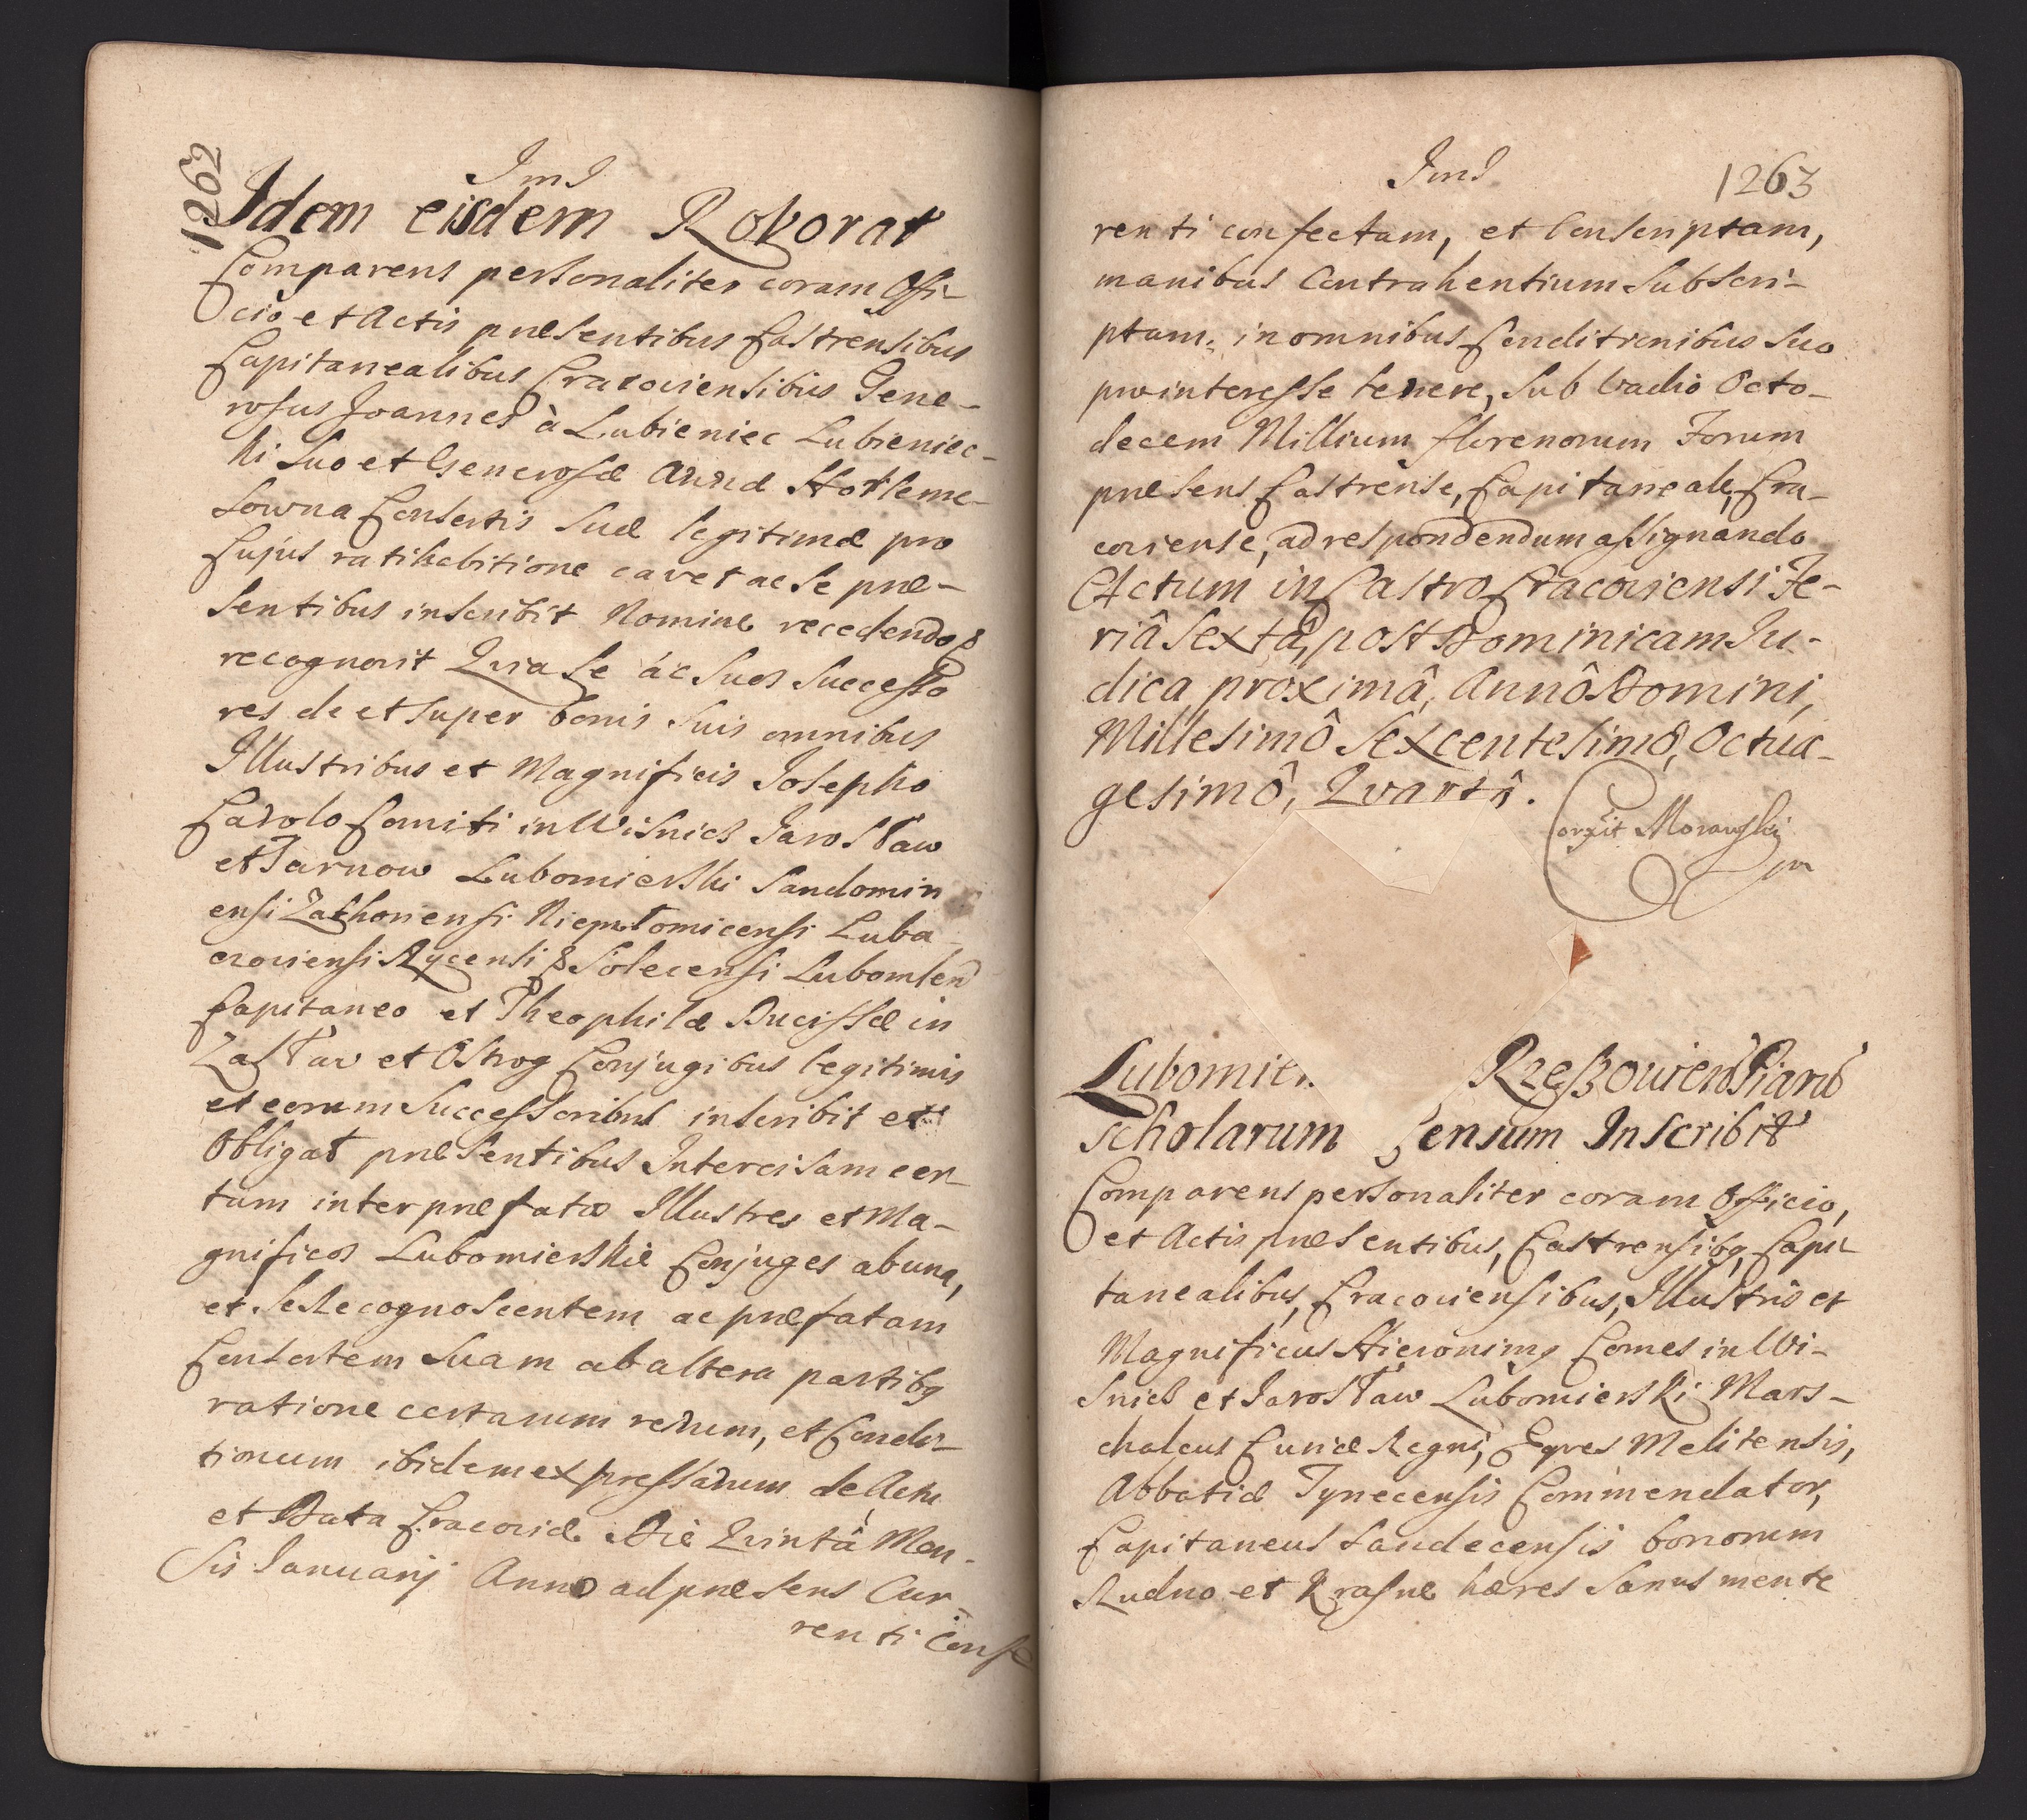 1262
Jms
Idem eisdem Roborat
Comparens personaliter coram Offi-
cio et Actis præsentibus Castrensibus
Capitanealibus Cracoviensibus Gene-
rosus Joannes à Lubieniec Lubieniec-
ki suo et Generosæ Annæ
Consortis suæ legitimæ pro
cujus ratihabitione cavet ac se præ-
sentibus inscribit Nomine recedendo &
recognovit Quia se ac suos successo
res de et super bonis suis omnibus
Illustribus et Magnificis Josepho
Carolo Comiti in Wisnicz Jarosław
et Tarnow Lubomierski Sandomiri
ensi Zathoriensi Niepołomicensi Luba
czoviensi Rycensi & Solecensi Lubomlen
Capitaneo et Theophilæ Ducissæ in
Zasław et Ostrog Conjugibus legitimis
et eorum Successoribus inscribit et
Obligat præsentibus Intercisam cer-
tam inter præfatos Illustres et Ma-
gnificos Lubomierskie Conjuges ab una,
et se Recognoscentem ac præfatam
Consortem suam ab altera partibq
ratione certarum rerum, et Condi-
tionum ibidem expressarum de Actu
et Data Cracoviæ Die Quintâ Men-
sis Januarij Anno ad præsens Cur-
renti Confe
Jms
1263
renti confectam, et Conscriptam,
manibus Contrahentium Subscri-
ptam, in omnibus Conditionibus suo
pro interesse tenere, sub vadio Octo-
decem Millium florenorum Forum
præsens Castrense, Capitaneale, Cra-
coviense, ad respondendum assignando
Actum in Castro Cracoviensi Fe-
riâ Sextâ, post Dominicam Ju-
dica proximâ, Annô Domini,
Millesimô Sexcentesimô, Octua-
gesimô, Quartô.
Corxit Morawski
Lubomier Rzeszovien Piaru
Scholarum Censum Inscribit
Comparens personaliter coram Officio,
et Actis præsentibus, Castrensibq, Capi-
tanealibus, Cracoviensibus, Illustris et
Magnificus Hieronimq Comes in Wi-
snicz et Jarosław Lubomierski Mars-
chalcus Curiæ Regni, Eques Melitensis,
Abbatiæ Tynecensis Commendator,
Capitaneus Sandecensis bonorum
Rudno et Krasne hæres Sanus mente